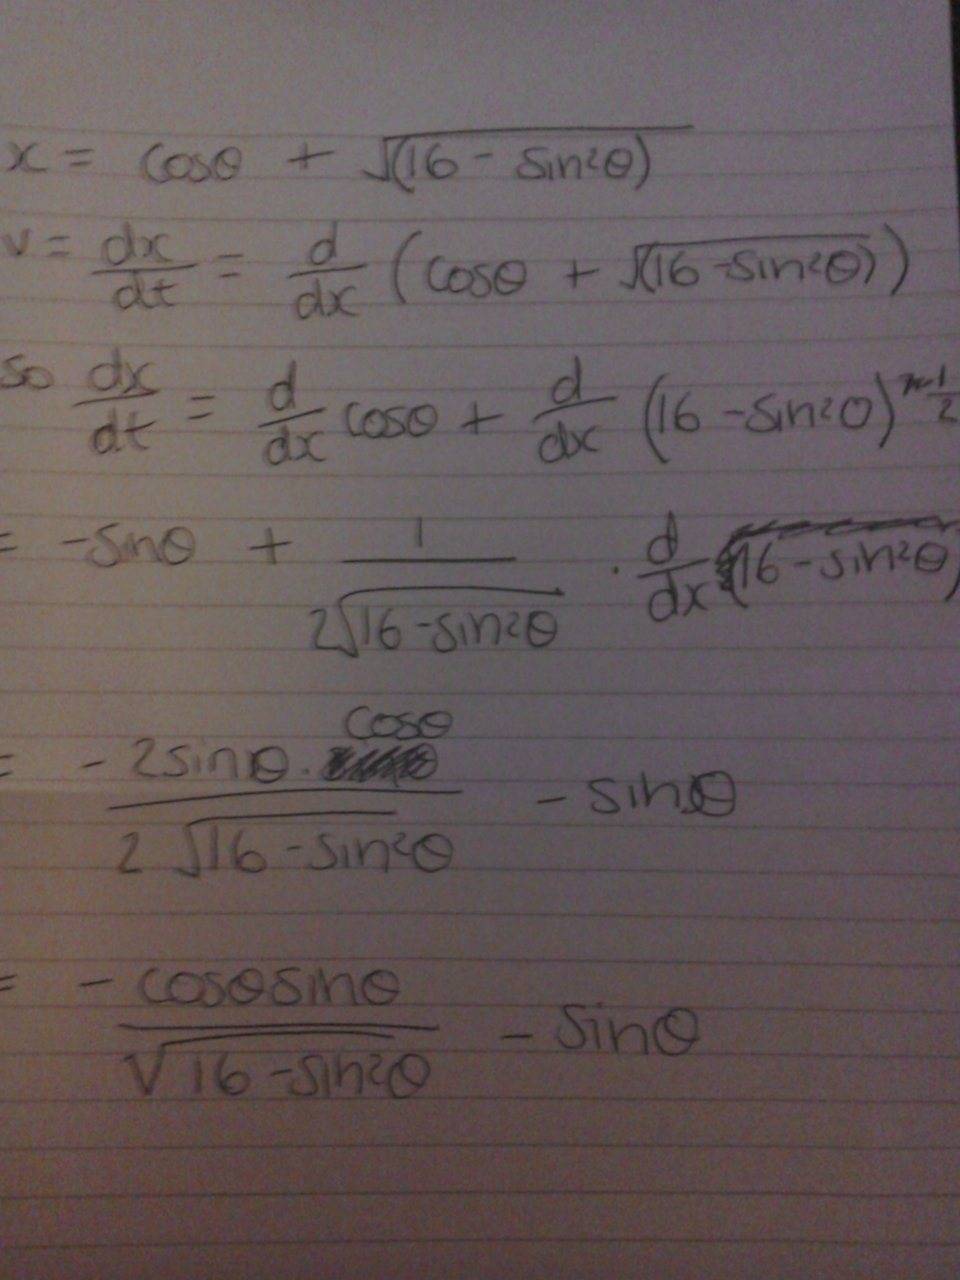 x = cosθ + √(16 - sin²θ)
v = dx/dt = d/dx (cosθ + √(16 - sin²θ))
so dx/dt = d/dx cosθ + d/dx (16 - sin²θ)^1/2
= -sinθ + 1/(2√16 - sin²θ) · d/dx (16 - sin²θ)
= - 2sinθ · cosθ / 2√16 - sin²θ - sinθ
= - cosθsinθ / √16 - sin²θ - sinθ